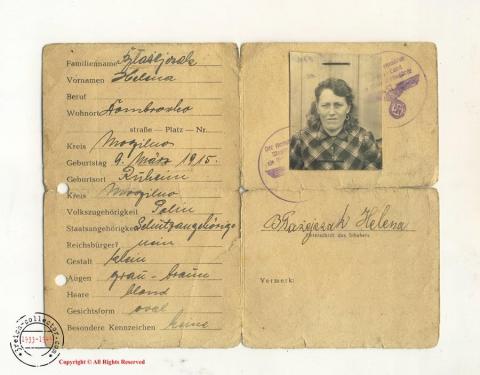 Familienname Błażejczak
Vornamen Helena
Beruf
Wohnort
straße — Platz — Nr.
Kreis Mogilno
Geburtstag 9. März 1915.
Geburtsort
Kreis Mogilno
Volkszugehörigkeit Polin
Staatsangehörigkeit Schutzangehörige
Reichsbürger? nein
Gestalt klein
Augen grau-braun
Haare blond
Gesichtsform oval
Besondere Kennzeichen keine
Helena
Unterschrift des Inhabers
Vermerk:
reich-collector.com
1933-1945
Copyright © All Rights Reserved